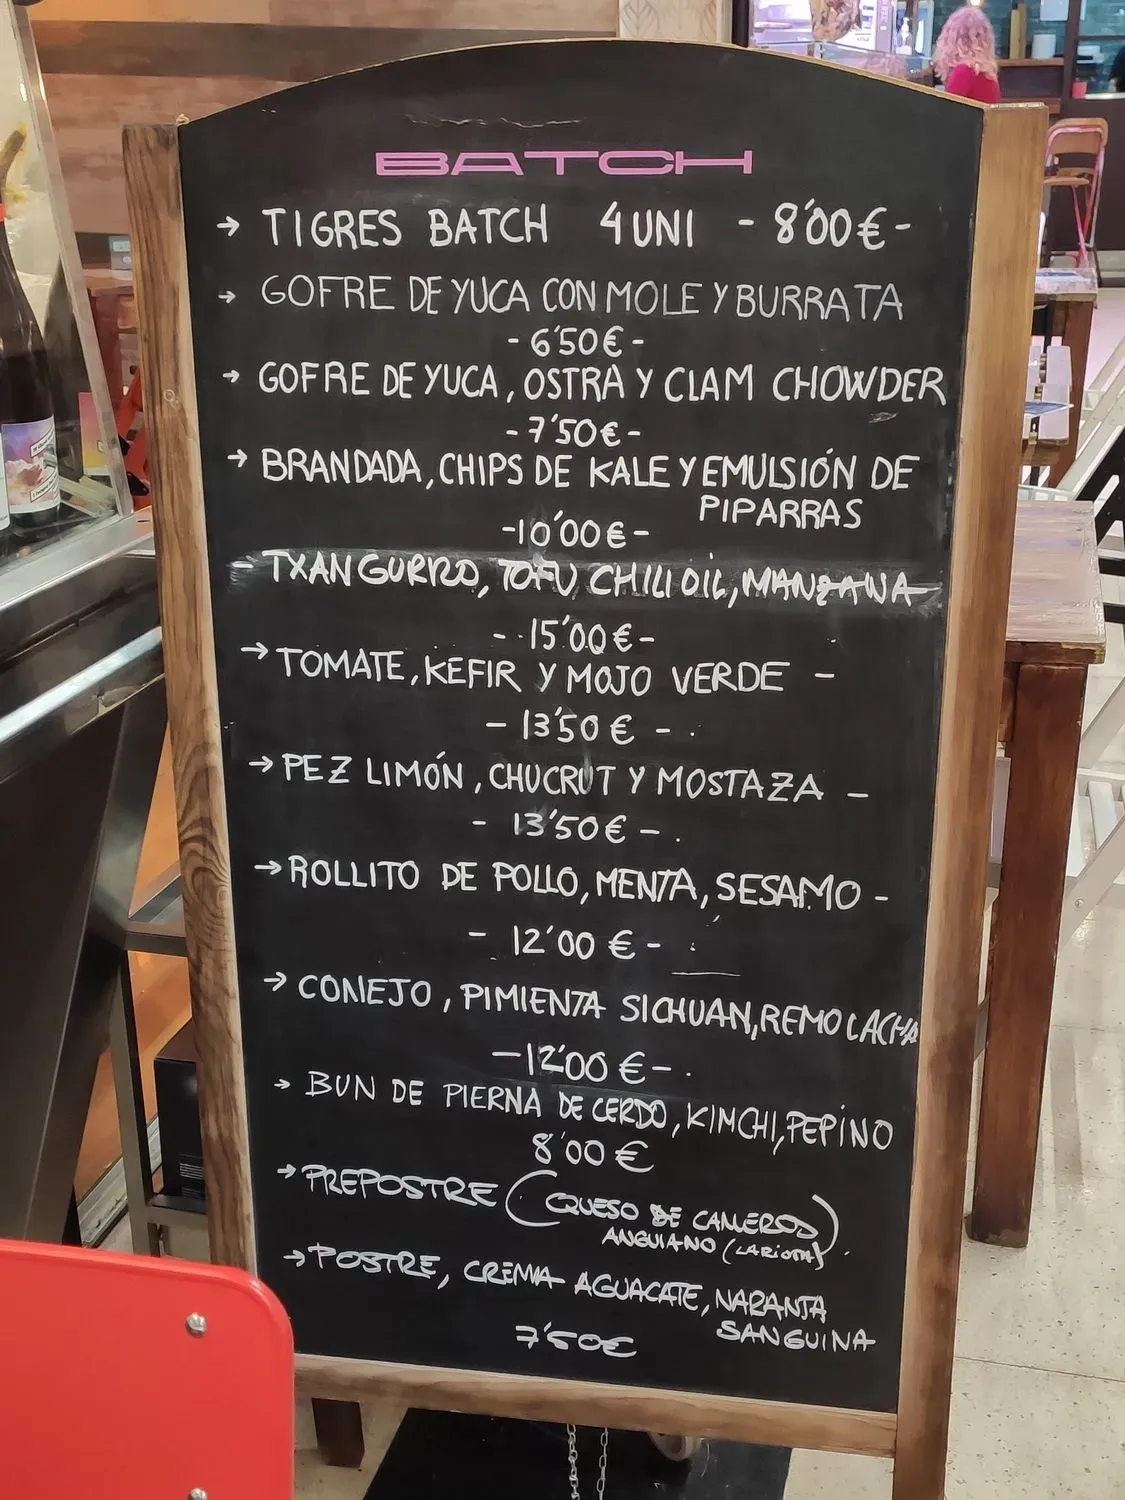 BATCH
→ TIGRES BATCH 4 UNI - 8'00€ -
→ GOFRE DE YUCA CON MOLE Y BURRATA
- 6'50€ -
→ GOFRE DE YUCA, OSTRA Y CLAM CHOWDER
- 7'50€ -
→ BRANDADA, CHIPS DE KALE Y EMULSIÓN DE
PIPARRAS
- 10'00€ -
- TXANGURRO, TOFU, CHILI OIL, MANZANA
- 15'00€ -
→ TOMATE, KEFIR Y MOJO VERDE -
- 13'50€ -
→ PEZ LIMÓN, CHUCRUT Y MOSTAZA -
- 13'50€ -
→ ROLLITO DE POLLO, MENTA, SESAMO -
- 12'00€ -
→ CONEJO, PIMIENTA SICHUAN, REMOLACHA
- 12'00€ -
→ BUN DE PIERNA DE CERDO, KIMCHI, PEPINO
8'00€
→ PREPOSTRE (QUESO DE CAMEROS)
ANGUIANO (LA RIOJA)
→ POSTRE, CREMA AGUACATE, NARANJA
SANGUINA
7'50€